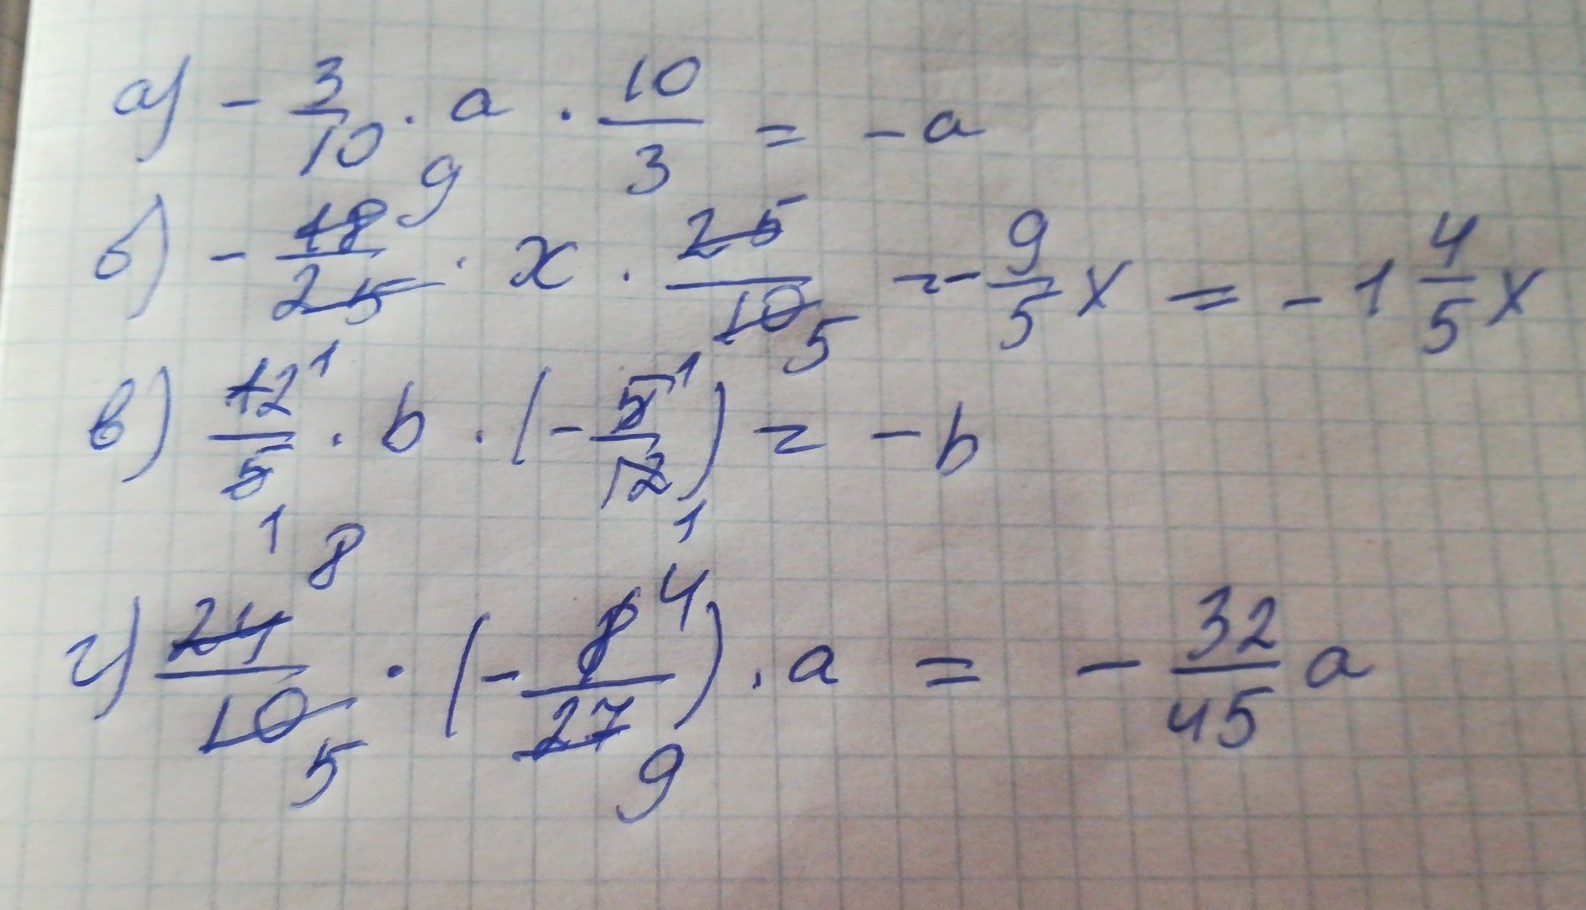 а) - 3/10 · a · 10/3 = - a
б) - 18/25 · x · 25/10 = - 9/5 x = - 1 4/5 x
в) 12/5 · b · (- 5/12) = - b
г) 24/10 · (- 8/27) · a = - 32/45 a